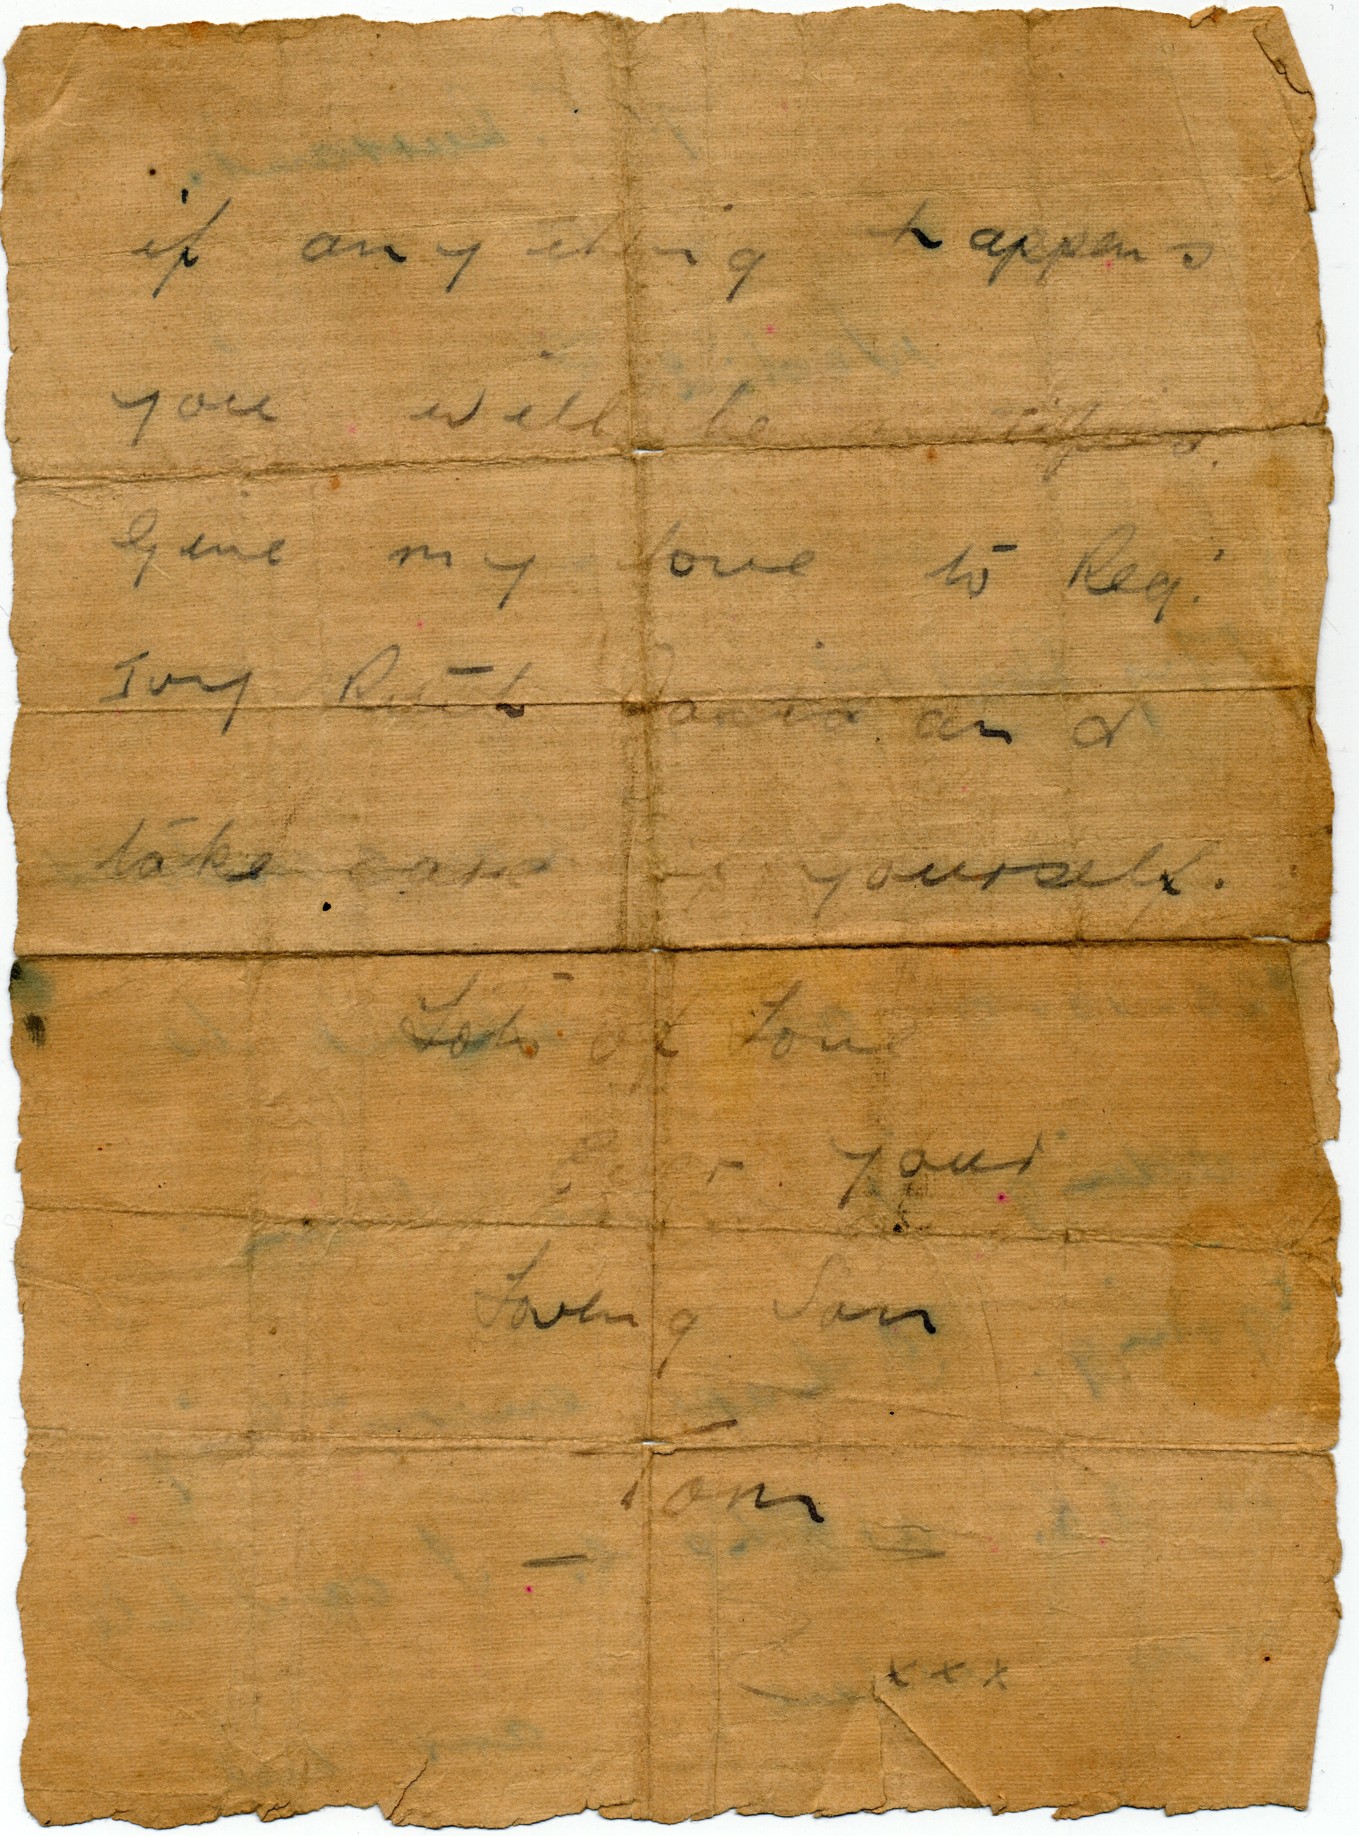 if anything happens
you will be notified.
Give my love to Reg.
Ivy Ruth David and
take care of yourself.
Lots of Love
Ever your
Loving Son
Tom
x x x